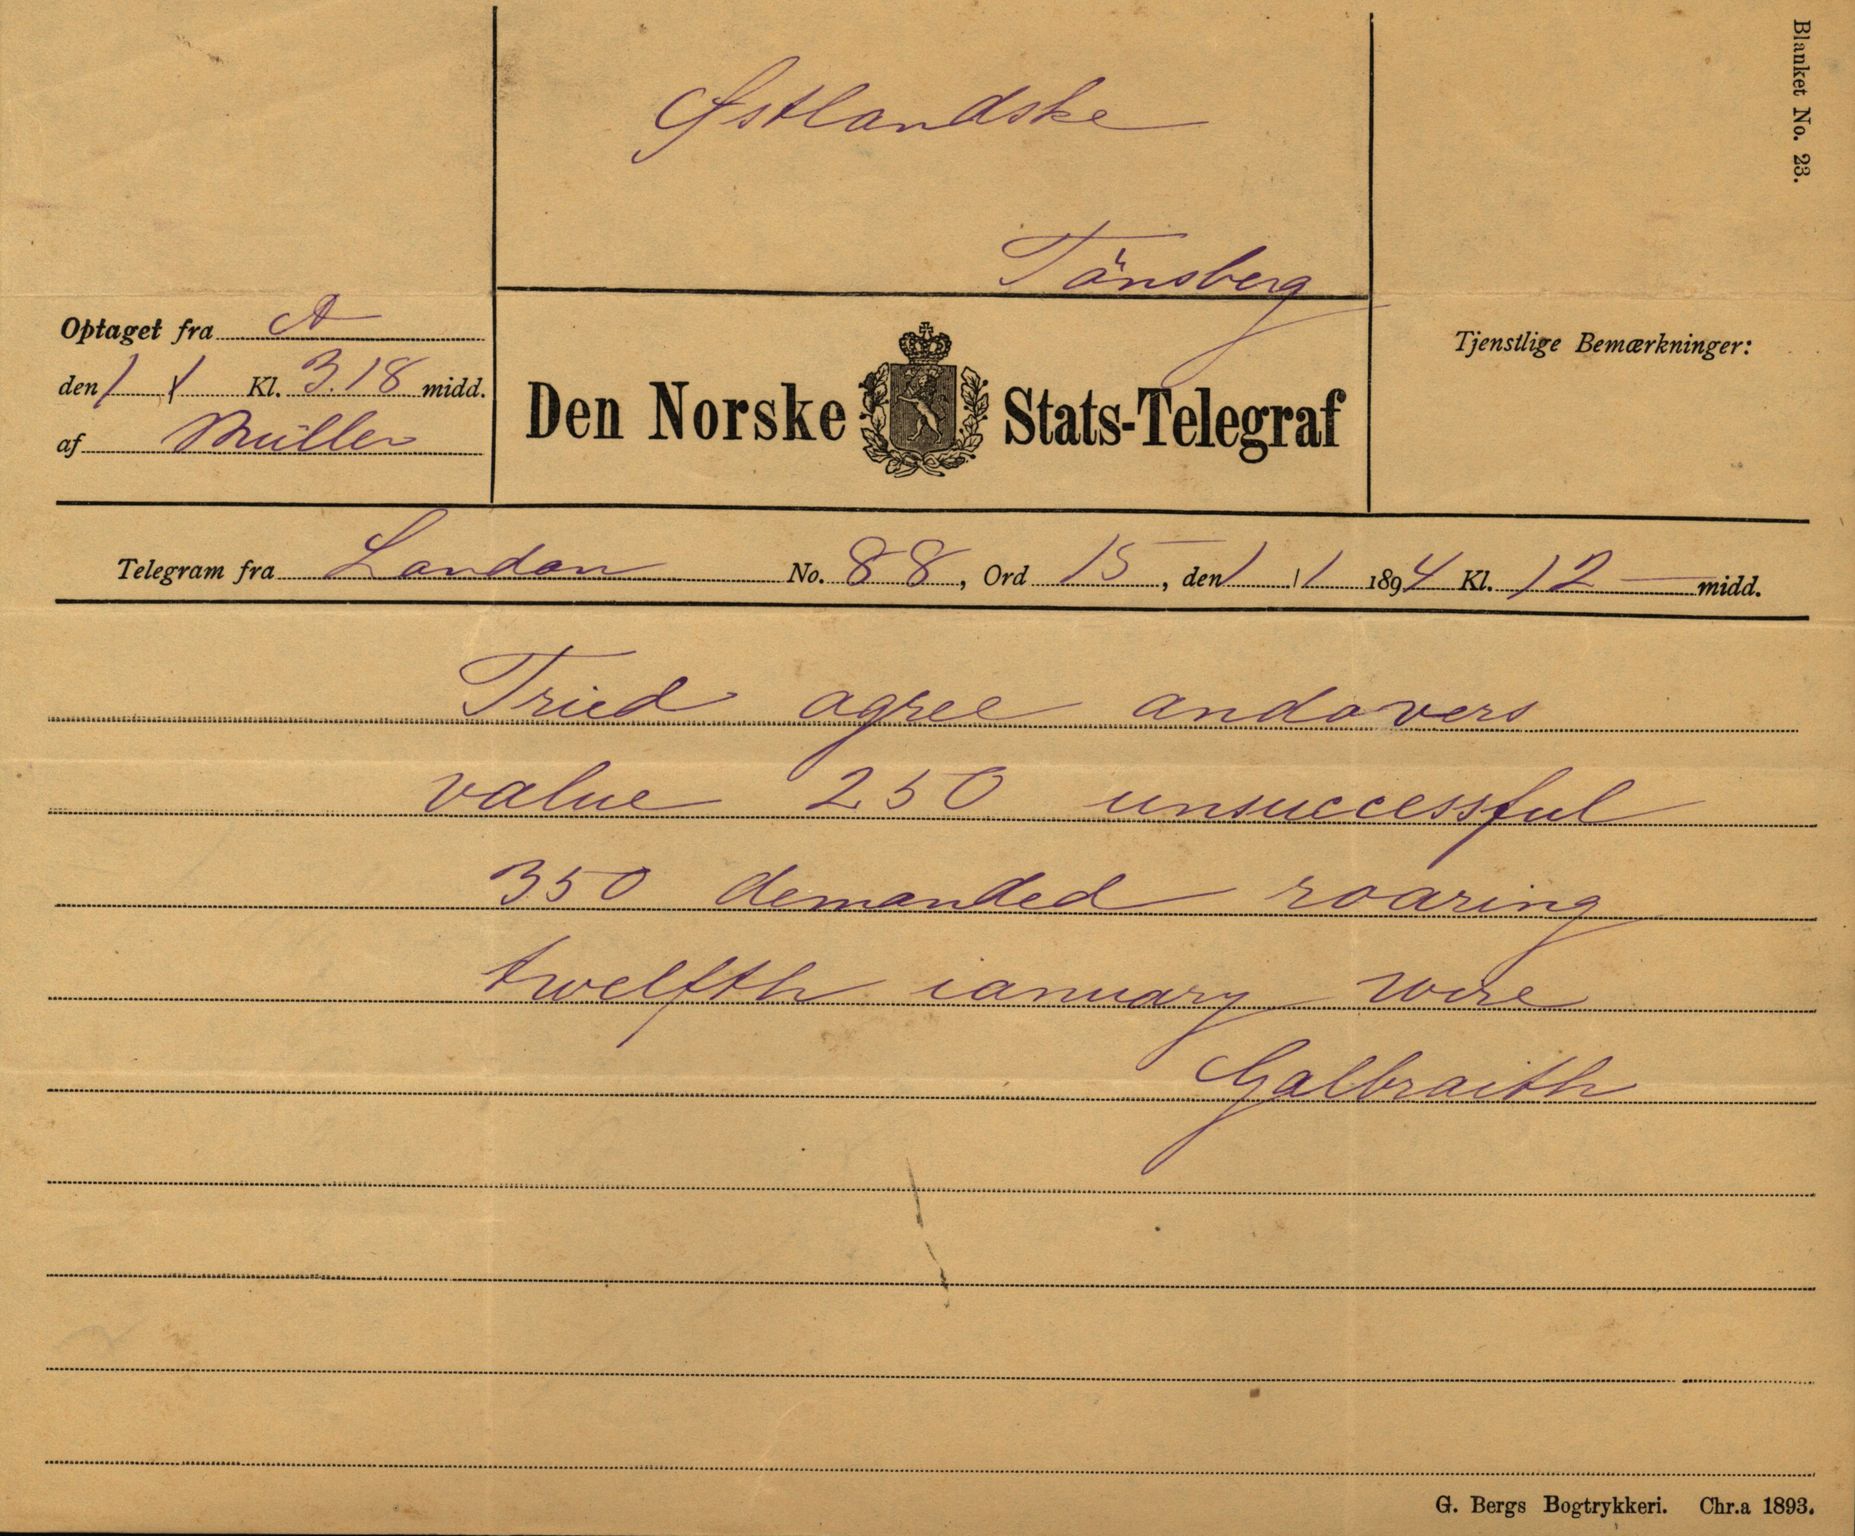 Blanket No. 23.
Østlandske
Tönsberg
Optaget fra A
den 1/1 Kl. 3.18 midd.
af Müller
Den Norske Stats-Telegraf
Tjenstlige Bemærkninger:
Telegram fra London No. 88, Ord 15, den 1/1 1894 Kl. 12 — midd.
Tried agree andovers
value 250 unsuccessful
350 demanded roaring
twelfth ianuary wire
Galbraith
G. Bergs Bogtrykkeri. Chr.a 1893.